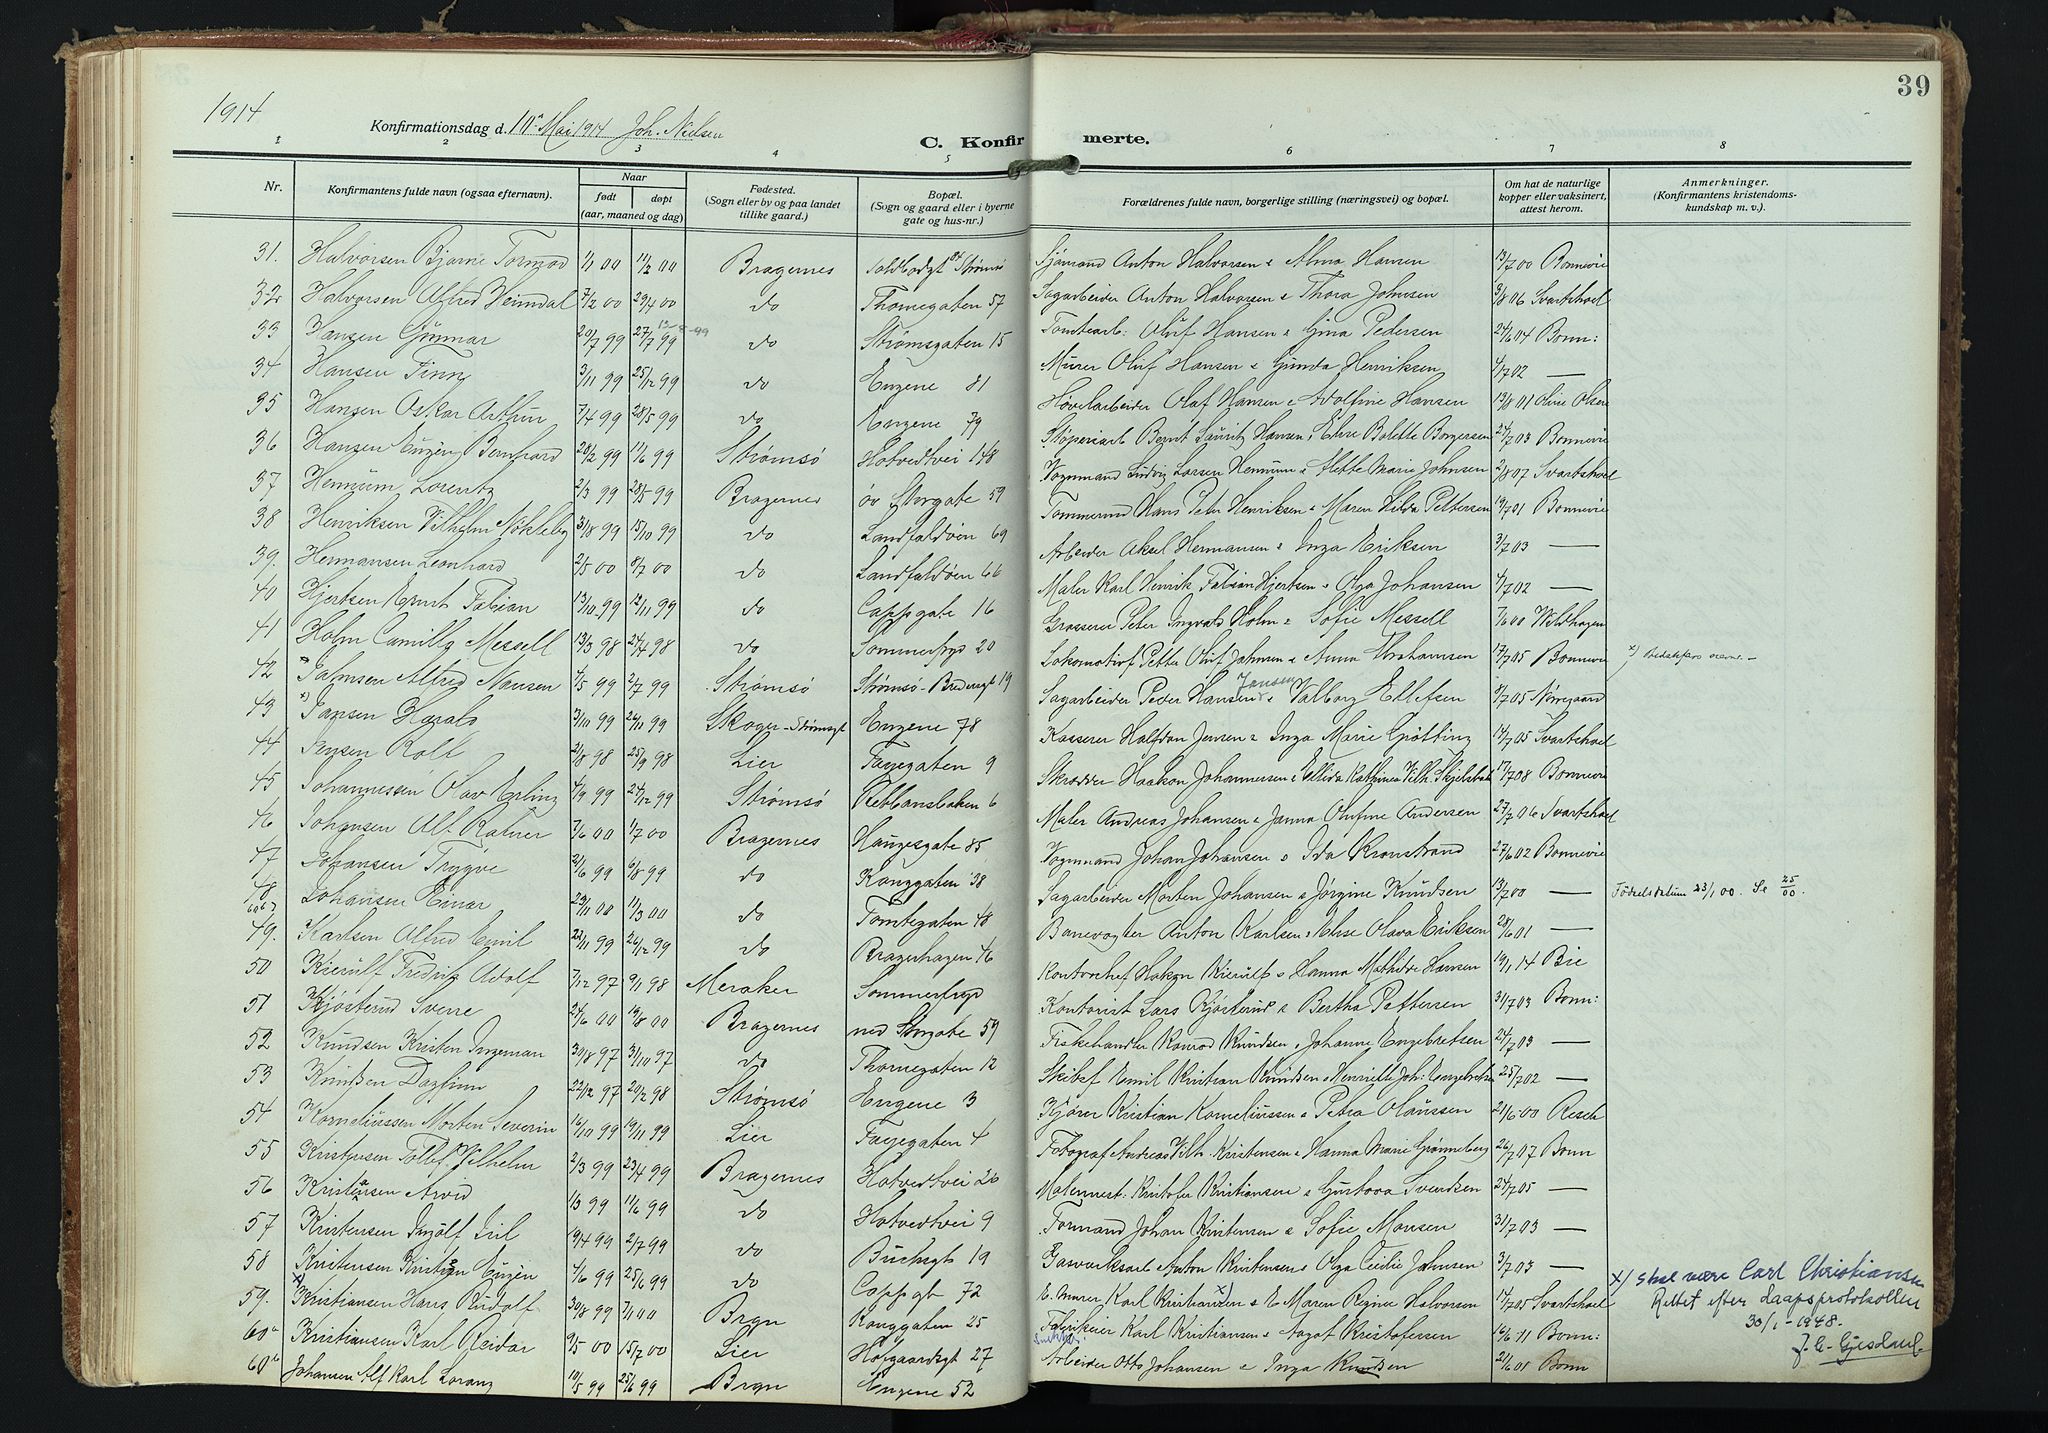 1914
39
Konfirmationsdag d. 10de Mai 1914 Joh. Nielsen
C. Konfirmerte.
1 2 3 4 5 6 7 8
Nr. Konfirmantens fulde navn (ogsaa efternavn). Naar født døpt (aar, maaned og dag) Fødested. (Sogn eller by og paa landet tillike gaard.) Bopæl. (Sogn og gaard eller i byerne gate og hus-nr.) Forældrenes fulde navn, borgerlige stilling (næringsvei) og bopæl. Om hat de naturlige kopper eller vaksinert, attest herom. Anmerkninger. (Konfirmantens kristendoms-kundskap m. v.).
31. Halvorsen Bjarne Tormod 1/1 00 11/2 00 Bragernes Toldbodgt 84 Strømsø Sjømand Anton Halvorsen & Alma Hansen 13/7 00 Bonnevie
32 Halvorsen Alfred Heimdal 7/2 00 29/4 00 do Thornegaten 57 Sagarbeider Anton Halvorsen & Thora Johnsen 3/8 06 Svartshoel
33 Hansen Gunnar 20/7 99 27/7 99 do Strømsgaten 15 Tomtearb: Oluf Hansen & Gina Pedersen 24/6 04 Bonn:
34 Hansen Finn 3/11 99 25/12 99 do Engene 81 Murer Oluf Hansen & Gunda Henriksen 4/7 02 —
35 Hansen Oskar Arthur 7/4 99 28/5 99 do Engene 79 Høvelarbeider Olaf Hansen & Adolfine Hansen 13/8 01 Oline Olsen
36 Hansen Eugen Bernhard 20/2 99 11/6 99 Strømsø Hotvedtvei 148 Støperiarb Bernt Lauritz Hansen, Elise Bolette Borgersen 24/7 03 Bonnevie
37 Hennum Lorentz 2/3 99 28/5 99 Bragernes øv Storgate 59 Vognmand Ludvig Larsen Hennum & Mette Marie Johnsen 2/8 07 Svartshoel
38 Henriksen Vilhelm Nøkleby 31/8 99 15/10 99 do Landfaldøen 69 Tømmermd Hans Peter Henriksen & Maren Hilda Pettersen 19/7 01 Bonnevie
39. Hermansen Leonhard 2/5 00 8/7 00 do Landfaldøen 66 Arbeider Aksel Hermansen & Inga Eriksen 3/7 03 —
40 Hjertsen Ernst Fabian 13/10 99 12/11 99 do Cappsgate 16 Maler Karl Henrik Fabian Hjertsen & Olga Johansen 4/7 02 —
41 Holm Camillo Messell 13/3 98 24/4 98 do Sommerfryd 20 Grosserer Peter Ingvald Holm & Sofie Messell 7/6 00 Wildhagen
42 Jahnsen Alfred Nansen 4/5 99 2/7 99 Strømsø Strømsø-Bredengt 19 Lokomotivf Petter Oluf Jahnsen & Anna Abrahamsen 17/7 05 Bonnevie
43 x) Jansen Harald 3/10 99 26/11 99 Skoger-Strømsgt Engene 78 Sagarbeider Peder Hansen Jansen & Valborg Ellefsen 3/7 05 Nørregaard
44 Jensen Rolf 2/8 98 25/9 98 Lier Fayegaten 9 Kasserer Halfdan Jensen & Inga Marie Gøtting 14/7 05 Svartshoel
45 Johannessen Olav Erling 4/9 99 24/12 99 Strømsø Rebbansbaken 6 Skrædder Haakon Johannessen & Ellida Kathinca Vilh. 17/7 08 Bonnevie
46 Johansen Alf Ragner 7/6 00 1/7 00 Bragernes Haugesgate 85 Maler Andreas Johansen & Janna Olufine Andersen 27/7 06 Svartshoel
47 Johansen Trygve 2/6 99 6/8 99 do Konggaten 38 Vognmand Johan Johansen & Ida Kronstrand 27/6 02 Bonnevie
48 Johansen Einar 23/11 00 11/3 00 do Tomtegaten 48 Sagarbeider Morten Johansen & Jørgine Knudsen 13/7 00 — Fødselsdatum 23/1 00. Se 25/00.
49. Karlsen Alfred Emil 22/11 99 26/12 99 do Bragerhagen 46 Banevogter Anton Karlsen & Elise Olava Eriksen 28/6 01 —
50 Kierulf Fredrik Adolf 7/12 97 9/1 98 Meraker Sommerfryd Kontorchef Hakon Kierulf & Hanna Mathilde Hansen 19/1 14 Bie
51 Kjøsterud Sverre 24/6 00 19/8 00 Bragernes ned Storgate 59 Kontorist Lars Kjøsterud & Bertha Pettersen 31/7 03 Bonn:
52 Knudsen Kristen Ingeman 30/8 97 31/10 97 do Thornegaten 12 Fiskehandler Konrad Knudsen & Johanne Engebretsen 24/7 03 —
53 Knudsen Dagfinn 22/12 97 20/2 98 Strømsø Engene 3 Skibsf Emil Kristian Knudsen & Henriette Joh: Engebretsen 25/7 02 —
54 Korneliussen Morten Severin 16/10 99 19/11 99 Lier Fayegaten 4 Kjører Kristian Korneliussen & Petra Olaussen 21/6 00 Resch
55 Kristensen Tollef Vilhelm 2/3 99 23/4 99 Bragernes Hotvedtvei 26 Fotograf Andreas Vilh. Kristensen & Hanna Marie Grønneberg 26/7 07 Bonn
56 Kristiansen Arvid 1/3 99 11/6 99 do Hotvedtvei 9 Malermest: Kristofer Kristiansen & Gustava Svendsen 24/7 05 —
57 Kristensen Ingolf Juel 19/4 99 2/7 99 do Buchsgt 19 Formand Johan Kristensen & Sofie Monsen 31/7 03 —
58 Kristensen Kristian Eugen 4/6 99 25/6 99 do Cappsgt 72 Gasverksarb Anton Kristensen & Olga Cecilie Jahnsen 3/7 03 —
59. x) Kristiansen Hans Rudolf 30/8 99 7/1 00 Brgn Konggaten 25 E. Murer Karl Kristiansen x) & E Maren Regine Halvorsen 14/7 05 Svartshoel x) skal være Carl Christiansen Rettet efter daapsprotokollen 30/1-1948. J. C. Gjesdahl.
60a Kristiansen Karl Reidar 9/5 00 15/7 00 Lier Hofgaardsgt 27 Karl Kristiansen & Aagot Kristofersen 16/6 11 Bonn:
60b Johansen Alf Karl Lorang 10/5 99 25/6 99 Brgn Engene 52 Arbeider Otto Johansen & Inga Knudsen 21/6 01 Bonn